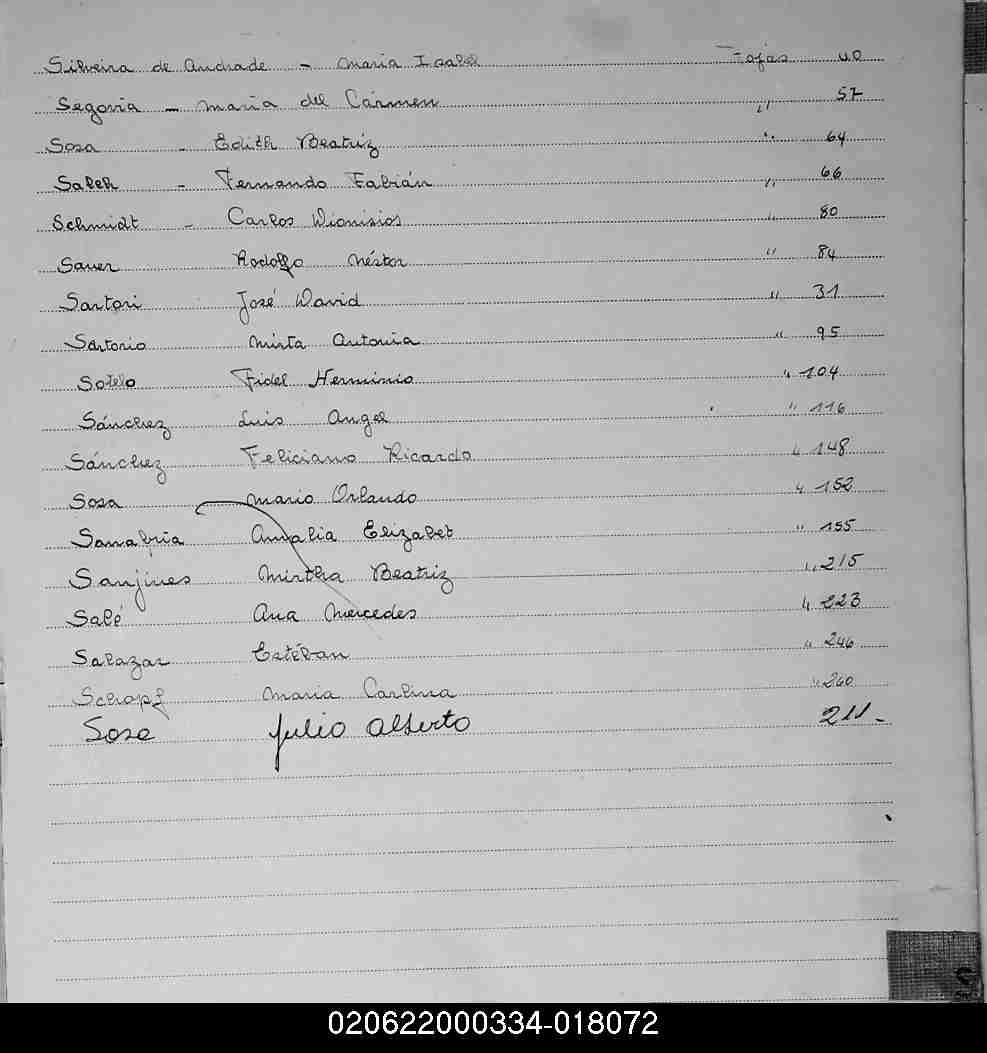 Silveira de Andrade - Maria Isabel Fojas 40
Segovia - Maria del Carmen " 57
Sosa - Edith Beatriz " 64
Saleh - Fernando Fabián " 66
Schmidt - Carlos Dionisios " 80
Sauer Rodolfo Néstor " 84
Sartori José David " 31
Sartorio Mirta Antonia " 95
Sotelo Fidel Herminio " 104
Sánchez Luis Angel " 116
Sánchez Feliciano Ricardo " 148
Sosa Mario Orlando " 152
Sanabria Amalia Elizabet " 155
Sanjines Mirtha Beatriz " 215
Salé Ana Mercedes " 223
Salazar Estéban " 246
Schopf Maria Carlina " 260
Sosa Julio Alberto 211-
020622000334-018072